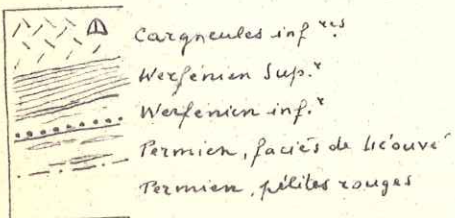 Cargneules inf res
Werfénien Sup.r
Werfenien inf.r
Permien, faciés de
Permien, pélites rouges